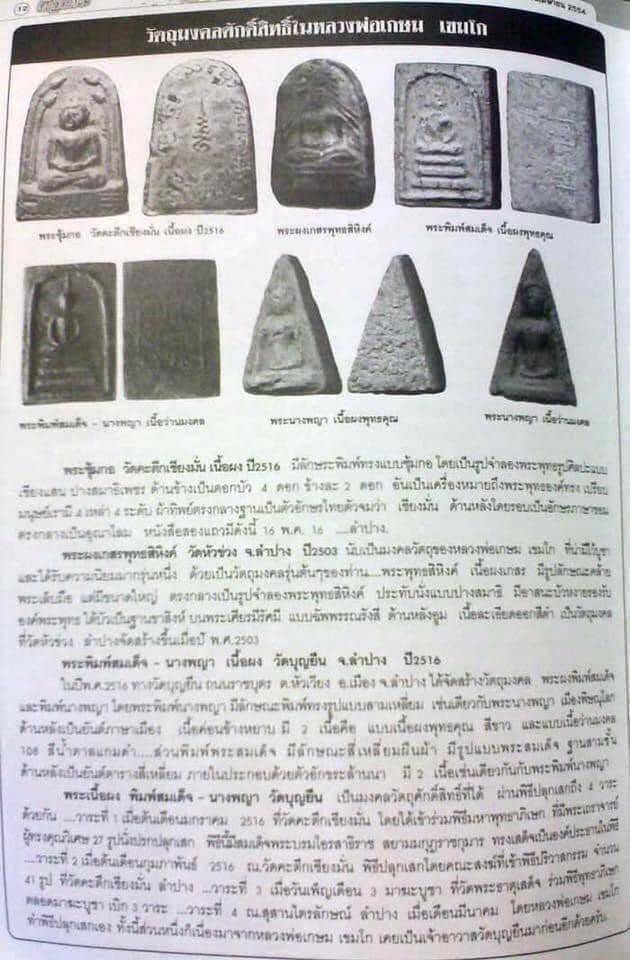 12
2554
วัตถุมงคลศักดิ์สิทธิ์ในหลวงพ่อเกษม เขมโก
พระซุ้มกอ วัดคะตึกเชียงมั่น เนื้อผง ปี2516
พระผงเกสรพุทธสิหิงค์
พระพิมพ์สมเด็จ เนื้อผงพุทธคุณ
พระพิมพ์สมเด็จ - นางพญา เนื้อว่านมงคล
พระนางพญา เนื้อผงพุทธคุณ
พระนางพญา เนื้อว่านมงคล
พระซุ้มกอ วัดคะตึกเชียงมั่น เนื้อผง ปี2516 มีลักษระพิมพ์ทรงแบบซุ้มกอ โดยเป็นรูปจำลองพระพุทธรูปศิลปะแบบ
เชียงแสน ปางสมาธิเพชร ด้านข้างเป็นดอกบัว 4 ดอก ข้างละ 2 ดอก อันเป็นเครื่องหมายถึงพระพุทธองค์ทรง เปรียบ
มนุษย์เรามี 4 เหล่า 4 ระดับ ผ้าทิพย์ตรงกลางฐานเป็นตัวอักษรไทยตัวจมว่า เชียงมั่น ด้านหลังโดยรอบเป็นอักษรภาษาขอม
ตรงกลางเป็นอุณาโลม หนังสือสองแถวมีดังนี้ 16 พ.ค. 16 ....ลำปาง.
พระผงเกสรพุทธสิหิงค์ วัดหัวข่วง จ.ลำปาง ปี2503 นับเป็นมงคลวัตถุของหลวงพ่อเกษม เขมโก ที่น่ามีไว้บูชา
และได้รับความนิยมมากรุ่นหนึ่ง ด้วยเป็นวัตถุมงคลรุ่นต้นๆของท่าน....พระพุทธสิหิงค์ เนื้อผงเกสร มีรูปลักษณะคล้าย
พระเล็บมือ แต่มีขนาดใหญ่ ตรงกลางเป็นรูปจำลองพระพุทธสิหิงค์ ประทับนั่งแบบปางสมาธิ มีอาสนะบัวหงายรองรับ
องค์พระพุทธ ใต้บัวเป็นฐานขาสิงห์ บนพระเศียรมีรัศมี แบบฉัพพรรณรังสี ด้านหลังอูม เนื้อละเอียดออกสีดำ เป็นวัตถุมงคล
ที่วัดหัวข่วง ลำปางจัดสร้างขึ้นเมื่อปี พ.ศ.2503
พระพิมพ์สมเด็จ - นางพญา เนื้อผง วัดบุญยืน จ.ลำปาง ปี2516
ในปีพ.ศ.2516 ทางวัดบุญยืน ถนนราชบุตร ต.หัวเวียง อ.เมือง จ.ลำปาง ได้จัดสร้างวัตถุมงคล พระผงพิมพ์สมเด็จ
และพิมพ์นางพญา โดยพระพิมพ์นางพญา มีลักษณะพิมพ์ทรงรูปแบบสามเหลี่ยม เช่นเดียวกับพระนางพญา เมืองพิษณุโลก
ด้านหลังเป็นยันต์ภาษาเมือง เนื้อค่อนข้างหยาบ มี 2 เนื้อคือ แบบเนื้อผงพุทธคุณ สีขาว และแบบเนื้อว่านมงคล
108 สีน้ำตาลแกมดำ....ส่วนพิมพ์พระสมเด็จ มีลักษณะสี่เหลี่ยมผืนผ้า มีรูปแบบพระสมเด็จ ฐานสามชั้น
ด้านหลังเป็นยันต์ตารางสี่เหลี่ยม ภายในประกอบด้วยตัวอักขระล้านนา มี 2 เนื้อเช่นเดียวกันกับพระพิมพ์นางพญา
พระเนื้อผง พิมพ์สมเด็จ - นางพญา วัดบุญยืน เป็นมงคลวัตถุศักดิ์สิทธิ์ที่ได้ ผ่านพิธีปลุกเสกถึง 4 วาระ
ด้วยกัน ....วาระที่ 1 เมื่อเดือนมกราคม 2516 ที่วัดคะตึกเชียงมั่น โดยได้เข้าร่วมพิธีมหาพุทธาภิเษก ที่มีพระเถราจารย์
ผู้ทรงคุณวิเศษ 27 รูปนั่งปรกปลุกเสก พิธีนี้มีสมเด็จพระบรมโอรสาธิราช สยามมกุฎราชกุมาร ทรงเสด็จเป็นองค์ประธานในพิธี
...วาระที่ 2 เมื่อเดือนกุมภาพันธ์ 2516 ณ.วัดคะตึกเชียงมั่น พิธีปลุกเสกโดยคณะสงฆ์ที่เข้าพิธีปริวาสกรรม จำนวน
41 รูป ที่วัดคะตึกเชียงมั่น ลำปาง ...วาระที่ 3 เมื่อวันเพ็ญเดือน 3 มาฆะบูชา ที่วัดพระธาตุเสด็จ ร่วมพิธีพุทธาภิเษก
ตลอดมาฆะบูชา เบิก 3 วาระ ...วาระที่ 4 ณ.สุสานไตรลักษณ์ ลำปาง เมื่อเดือนมีนาคม โดยหลวงพ่อเกษม เขมโก
ทำพิธีปลุกเสกเอง ทั้งนี้ส่วนหนึ่งก็เนื่องมาจากหลวงพ่อเกษม เขมโก เคยเป็นเจ้าอาวาสวัดบุญยืนมาก่อนอีกด้วยครับ.